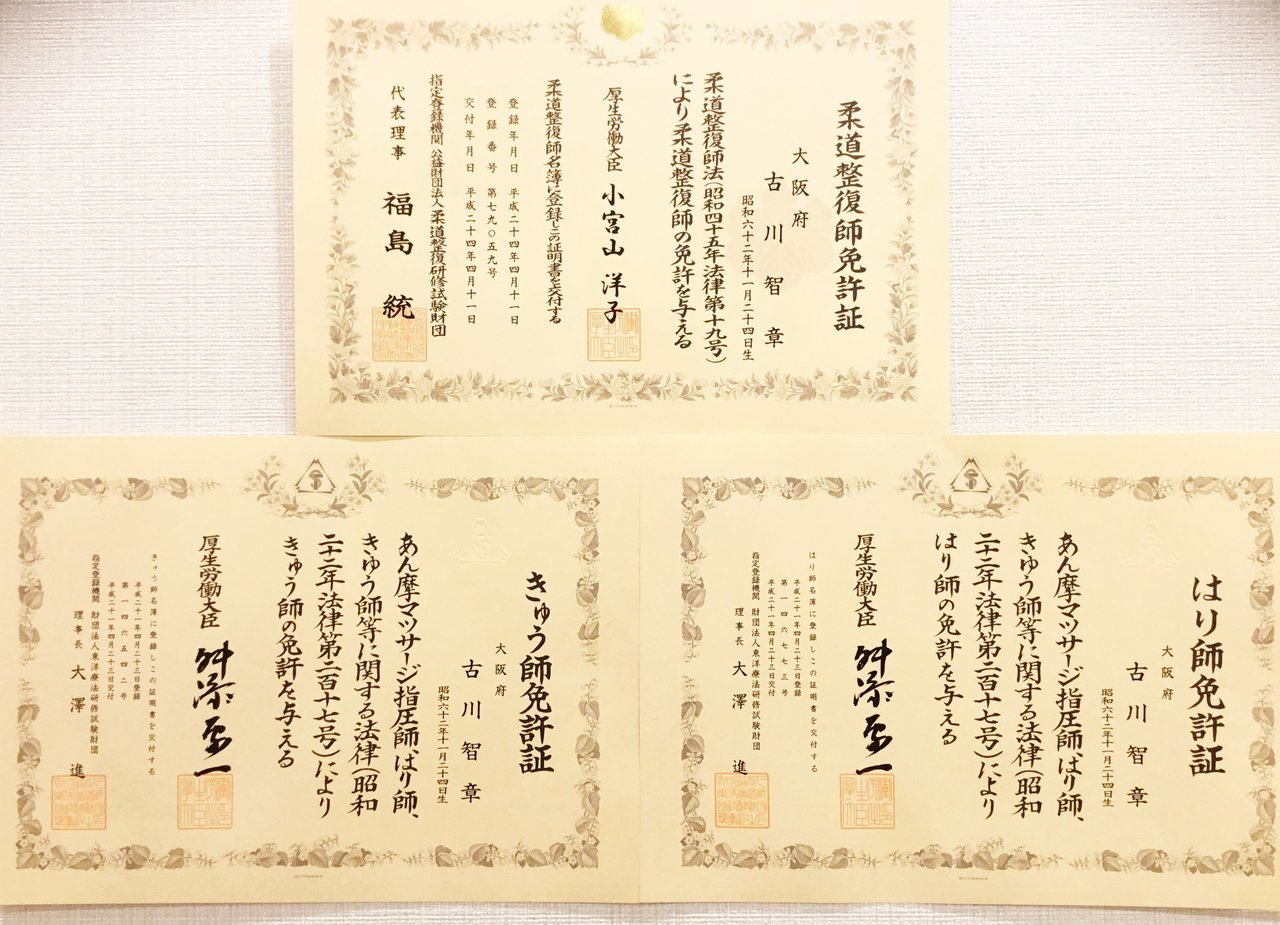 柔道整復師免許証
大阪府
古川智章
昭和六十二年十一月二十四日生
柔道整復師法(昭和四十五年法律第十九号)
により柔道整復師の免許を与える
厚生労働大臣 小宮山洋子
柔道整復師名簿に登録しこの証明書を交付する
登録年月日 平成二十四年四月十一日
登録番号 第七九〇五九号
交付年月日 平成二十四年四月十一日
指定登録機関 公益財団法人柔道整復研修試験財団
代表理事 福島統
きゅう師免許証
大阪府
古川智章
昭和六十二年十一月二十四日生
あん摩マツサージ指圧師、はり師、
きゅう師等に関する法律(昭和
二十二年法律第二百十七号)により
きゅう師の免許を与える
厚生労働大臣 舛添要一
きゅう師名簿に登録しこの証明書を交付する
平成二十一年四月二十三日登録
第一四六五四二号
平成二十一年四月二十三日交付
指定登録機関 財団法人東洋療法研修試験財団
理事長 大澤進
はり師免許証
大阪府
古川智章
昭和六十二年十一月二十四日生
あん摩マツサージ指圧師、はり師、
きゅう師等に関する法律(昭和
二十二年法律第二百十七号)により
はり師の免許を与える
厚生労働大臣 舛添要一
はり師名簿に登録しこの証明書を交付する
平成二十一年四月二十三日登録
第一四六七三三号
平成二十一年四月二十三日交付
指定登録機関 財団法人東洋療法研修試験財団
理事長 大澤進